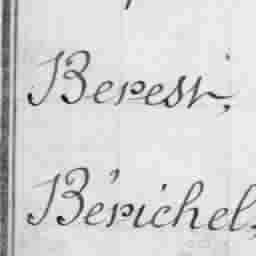 Berest,
Bérichel,